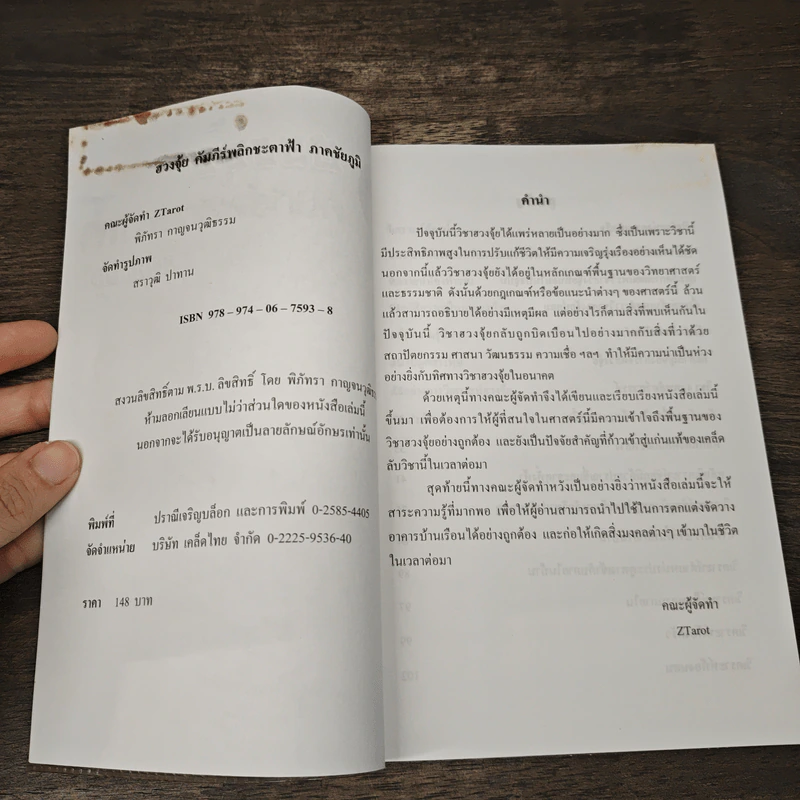 ฮวงจุ้ย คัมภีร์พลิกชะตาฟ้า ภาคชัยภูมิ
คณะผู้จัดทำ ZTarot
พิภัทรา กาญจนวุฒิธรรม
จัดทำรูปภาพ
สราวุฒิ ปาทาน
ISBN 978 – 974 – 06 – 7593 – 8
สงวนลิขสิทธิ์ตาม พ.ร.บ. ลิขสิทธิ์ โดย พิภัทรา กาญจนวุฒิ
ห้ามลอกเลียนแบบไม่ว่าส่วนใดของหนังสือเล่มนี้
นอกจากจะได้รับอนุญาตเป็นลายลักษณ์อักษรเท่านั้น
พิมพ์ที่ ปราณีเจริญบล็อก และการพิมพ์ 0-2585-4405
จัดจำแหน่าย บริษัท เคล็ดไทย จำกัด 0-2225-9536-40
ราคา 148 บาท
คำนำ
ปัจจุบันนี้วิชาฮวงจุ้ยได้แพร่หลายเป็นอย่างมาก ซึ่งเป็นเพราะวิชานี้
มีประสิทธิภาพสูงในการปรับแก้ชีวิตให้มีความเจริญรุ่งเรืองอย่างเห็นได้ชัด
นอกจากนี้แล้ววิชาฮวงจุ้ยยังได้อยู่ในหลักเกณฑ์พื้นฐานของวิทยาศาสตร์
และธรรมชาติ ดังนั้นด้วยกฎเกณฑ์หรือข้อแนะนำต่างๆ ของศาสตร์นี้ ล้วน
แล้วสามารถอธิบายได้อย่างมีเหตุมีผล แต่อย่างไรก็ตามสิ่งที่พบเห็นกันใน
ปัจจุบันนี้ วิชาฮวงจุ้ยกลับถูกบิดเบือนไปอย่างมากกับสิ่งที่ว่าด้วย
สถาปัตยกรรม ศาสนา วัฒนธรรม ความเชื่อ ฯลฯ ทำให้มีความน่าเป็นห่วง
อย่างยิ่งกับทิศทางวิชาฮวงจุ้ยในอนาคต
ด้วยเหตุนี้ทางคณะผู้จัดทำจึงได้เขียนและเรียบเรียงหนังสือเล่มนี้
ขึ้นมา เพื่อต้องการให้ผู้ที่สนใจในศาสตร์นี้มีความเข้าใจถึงพื้นฐานของ
วิชาฮวงจุ้ยอย่างถูกต้อง และยังเป็นปัจจัยสำคัญที่ก้าวเข้าสู่แก่นแท้ของเคล็ด
ลับวิชานี้ในเวลาต่อมา
สุดท้ายนี้ทางคณะผู้จัดทำหวังเป็นอย่างยิ่งว่าหนังสือเล่มนี้จะให้
สาระความรู้ที่มากพอ เพื่อให้ผู้อ่านสามารถนำไปใช้ในการตกแต่งจัดวาง
อาคารบ้านเรือนได้อย่างถูกต้อง และก่อให้เกิดสิ่งมงคลต่างๆ เข้ามาในชีวิต
ในเวลาต่อมา
คณะผู้จัดทำ
ZTarot